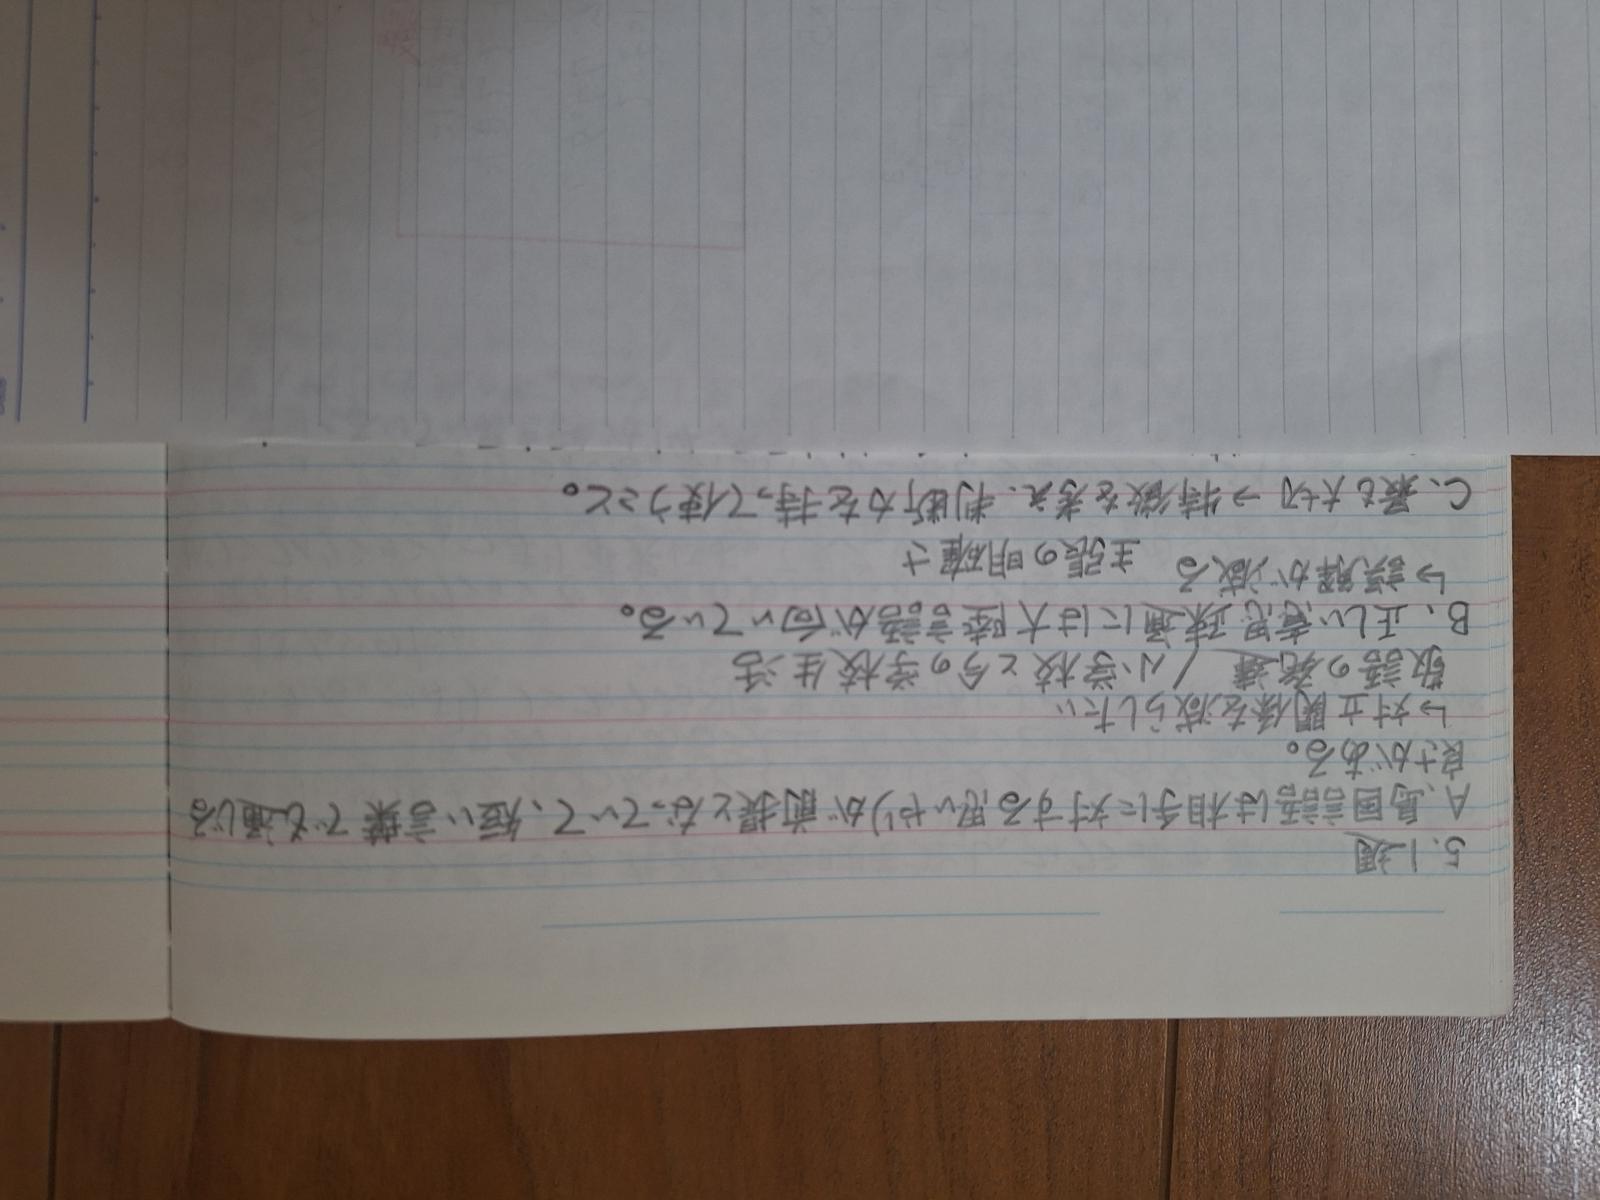 5.1週
A、島国言語は相手に対する思いやりが前提となっていて、短い言葉でも通じる
良さがある。
↳対立関係を減らしたい
敬語の発達 / 小学校と今の学校生活
B、正しい意思疎通には大陸言語が向いている。
↳誤解が減る 主張の明確さ
C、最も大切→特徴を考え、判断力を持って使うこと。